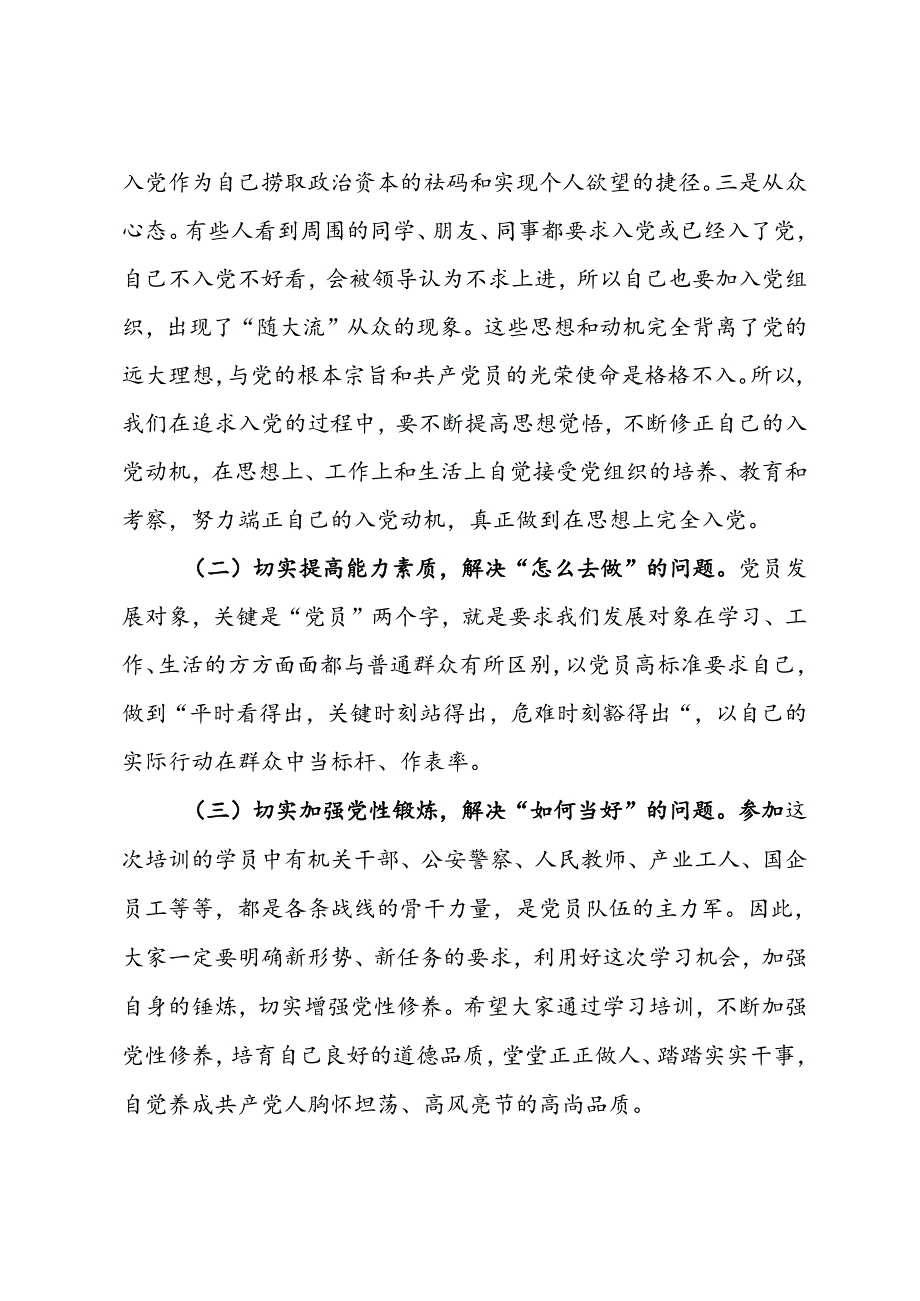 入党作为自己捞取政治资本的祛码和实现个人欲望的捷径。三是从众
心态。有些人看到周围的同学、朋友、同事都要求入党或已经入了党，
自己不入党不好看，会被领导认为不求上进，所以自己也要加入党组
织，出现了“随大流”从众的现象。这些思想和动机完全背离了党的
远大理想，与党的根本宗旨和共产党员的光荣使命是格格不入。所以，
我们在追求入党的过程中，要不断提高思想觉悟，不断修正自己的入
党动机，在思想上、工作上和生活上自觉接受党组织的培养、教育和
考察，努力端正自己的入党动机，真正做到在思想上完全入党。
（二）切实提高能力素质，解决“怎么去做”的问题。党员发
展对象，关键是“党员”两个字，就是要求我们发展对象在学习、工
作、生活的方方面面都与普通群众有所区别，以党员高标准要求自己，
做到“平时看得出，关键时刻站得出，危难时刻豁得出“，以自己的
实际行动在群众中当标杆、作表率。
（三）切实加强党性锻炼，解决“如何当好”的问题。参加这
次培训的学员中有机关干部、公安警察、人民教师、产业工人、国企
员工等等，都是各条战线的骨干力量，是党员队伍的主力军。因此，
大家一定要明确新形势、新任务的要求，利用好这次学习机会，加强
自身的锤炼，切实增强党性修养。希望大家通过学习培训，不断加强
党性修养，培育自己良好的道德品质，堂堂正正做人、踏踏实实干事，
自觉养成共产党人胸怀坦荡、高风亮节的高尚品质。